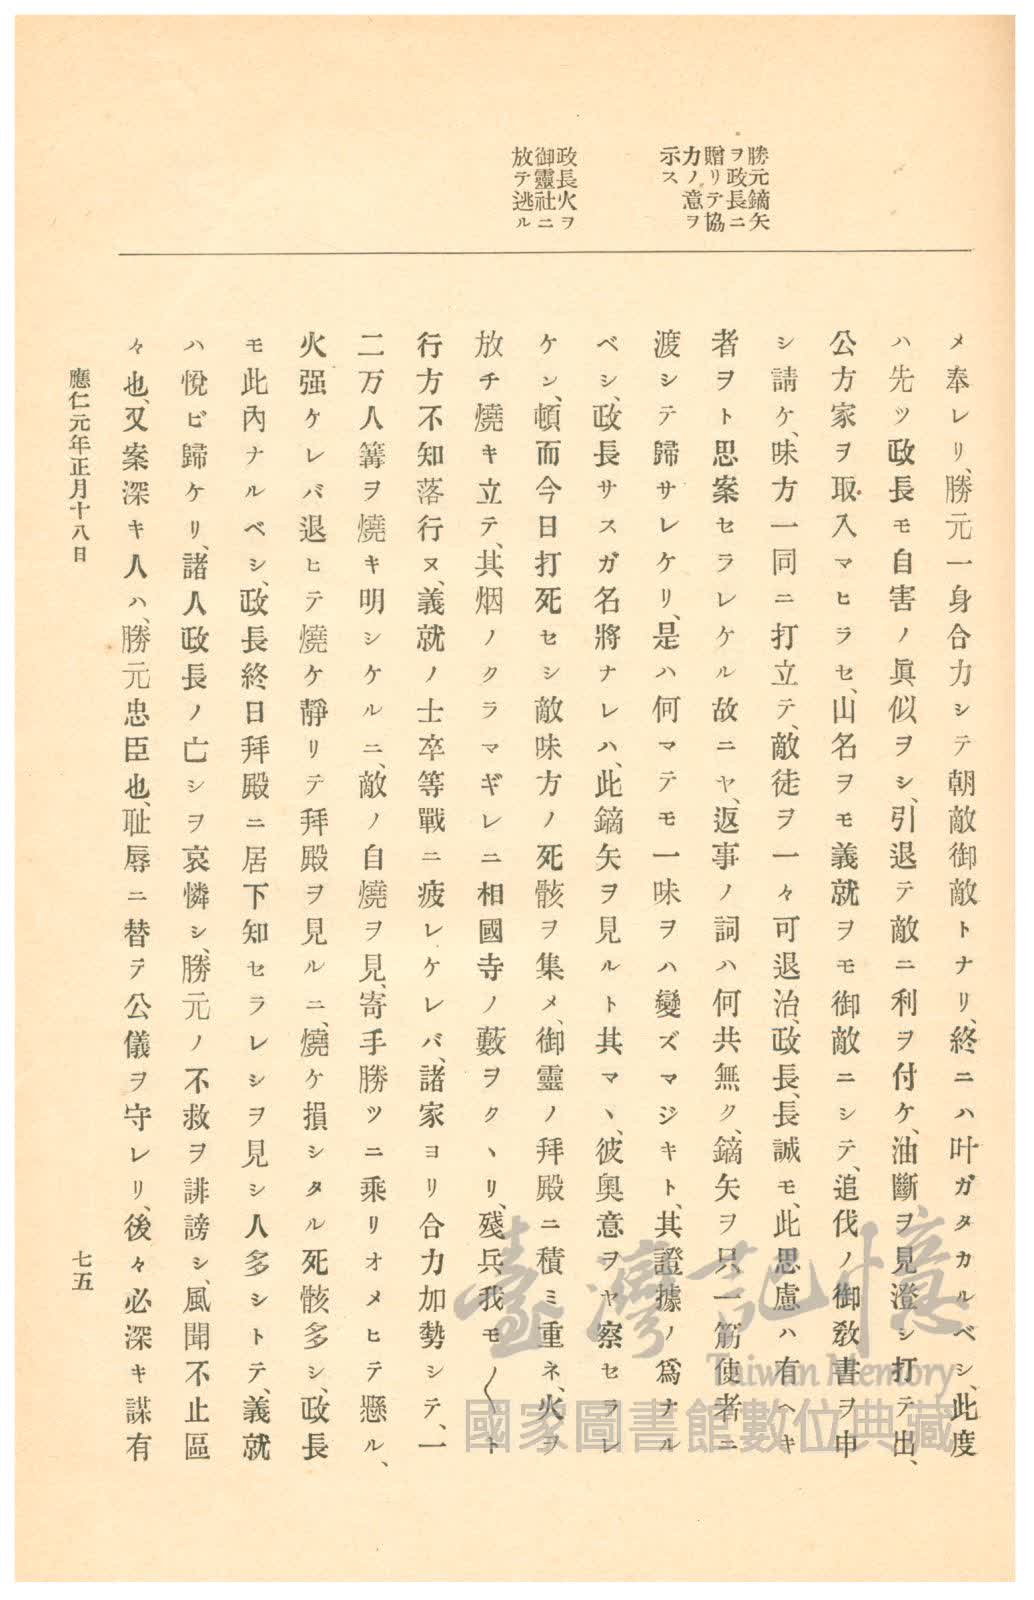 勝元鏑矢
ヲ政長ニ
贈リテ協
力ノ意ヲ
示ス
政長火ヲ
御靈社ニ
放テ逃ル
メ奉レリ、勝元一身合力シテ朝敵御敵トナリ、終ニハ叶ガタカルベシ、此度
ハ先ツ政長モ自害ノ眞似ヲシ、引退テ敵ニ利ヲ付ケ、油斷ヲ見澄シ打テ出、
公方家ヲ取入マヒラセ、山名ヲモ義就ヲモ御敵ニシテ、追伐ノ御敎書ヲ申
シ請ケ、味方一同ニ打立テ、敵徒ヲ一々可退治、政長、長誠モ、此思慮ハ有ヘキ
者ヲト思案セラレケル故ニヤ、返事ノ詞ハ何共無ク、鏑矢ヲ只一筋使者ニ
渡シテ歸サレケリ、是ハ何マテモ一味ヲハ變ズマジキト、其證據ノ爲ナル
ベシ、政長サスガ名將ナレハ、此鏑矢ヲ見ルト其マヽ、彼奧意ヲヤ察セラレ
ケン、頓而今日打死セシ敵味方ノ死骸ヲ集メ、御靈ノ拜殿ニ積ミ重ネ、火ヲ
放チ燒キ立テ、其烟ノクラマギレニ相國寺ノ藪ヲクヽリ、殘兵我モ〱ト
行方不知落行ヌ、義就ノ士卒等戰ニ疲レケレバ、諸家ヨリ合力加勢シテ、一
二万人篝ヲ燒キ明シケルニ、敵ノ自燒ヲ見、寄手勝ツニ乘リオメヒテ懸ル、
火强ケレバ退ヒテ燒ケ靜リテ拜殿ヲ見ルニ、燒ケ損シタル死骸多シ、政長
モ此內ナルベシ、政長終日拜殿ニ居下知セラレシヲ見シ人多シトテ、義就
ハ悅ビ歸ケリ、諸人政長ノ亡シヲ哀憐シ、勝元ノ不救ヲ誹謗シ、風聞不止區
々也、又案深キ人ハ、勝元忠臣也、耻辱ニ替テ公儀ヲ守レリ、後々必深キ謀有
應仁元年正月十八日
七五
臺灣記憶
Taiwan Memory
國家圖書館數位典藏